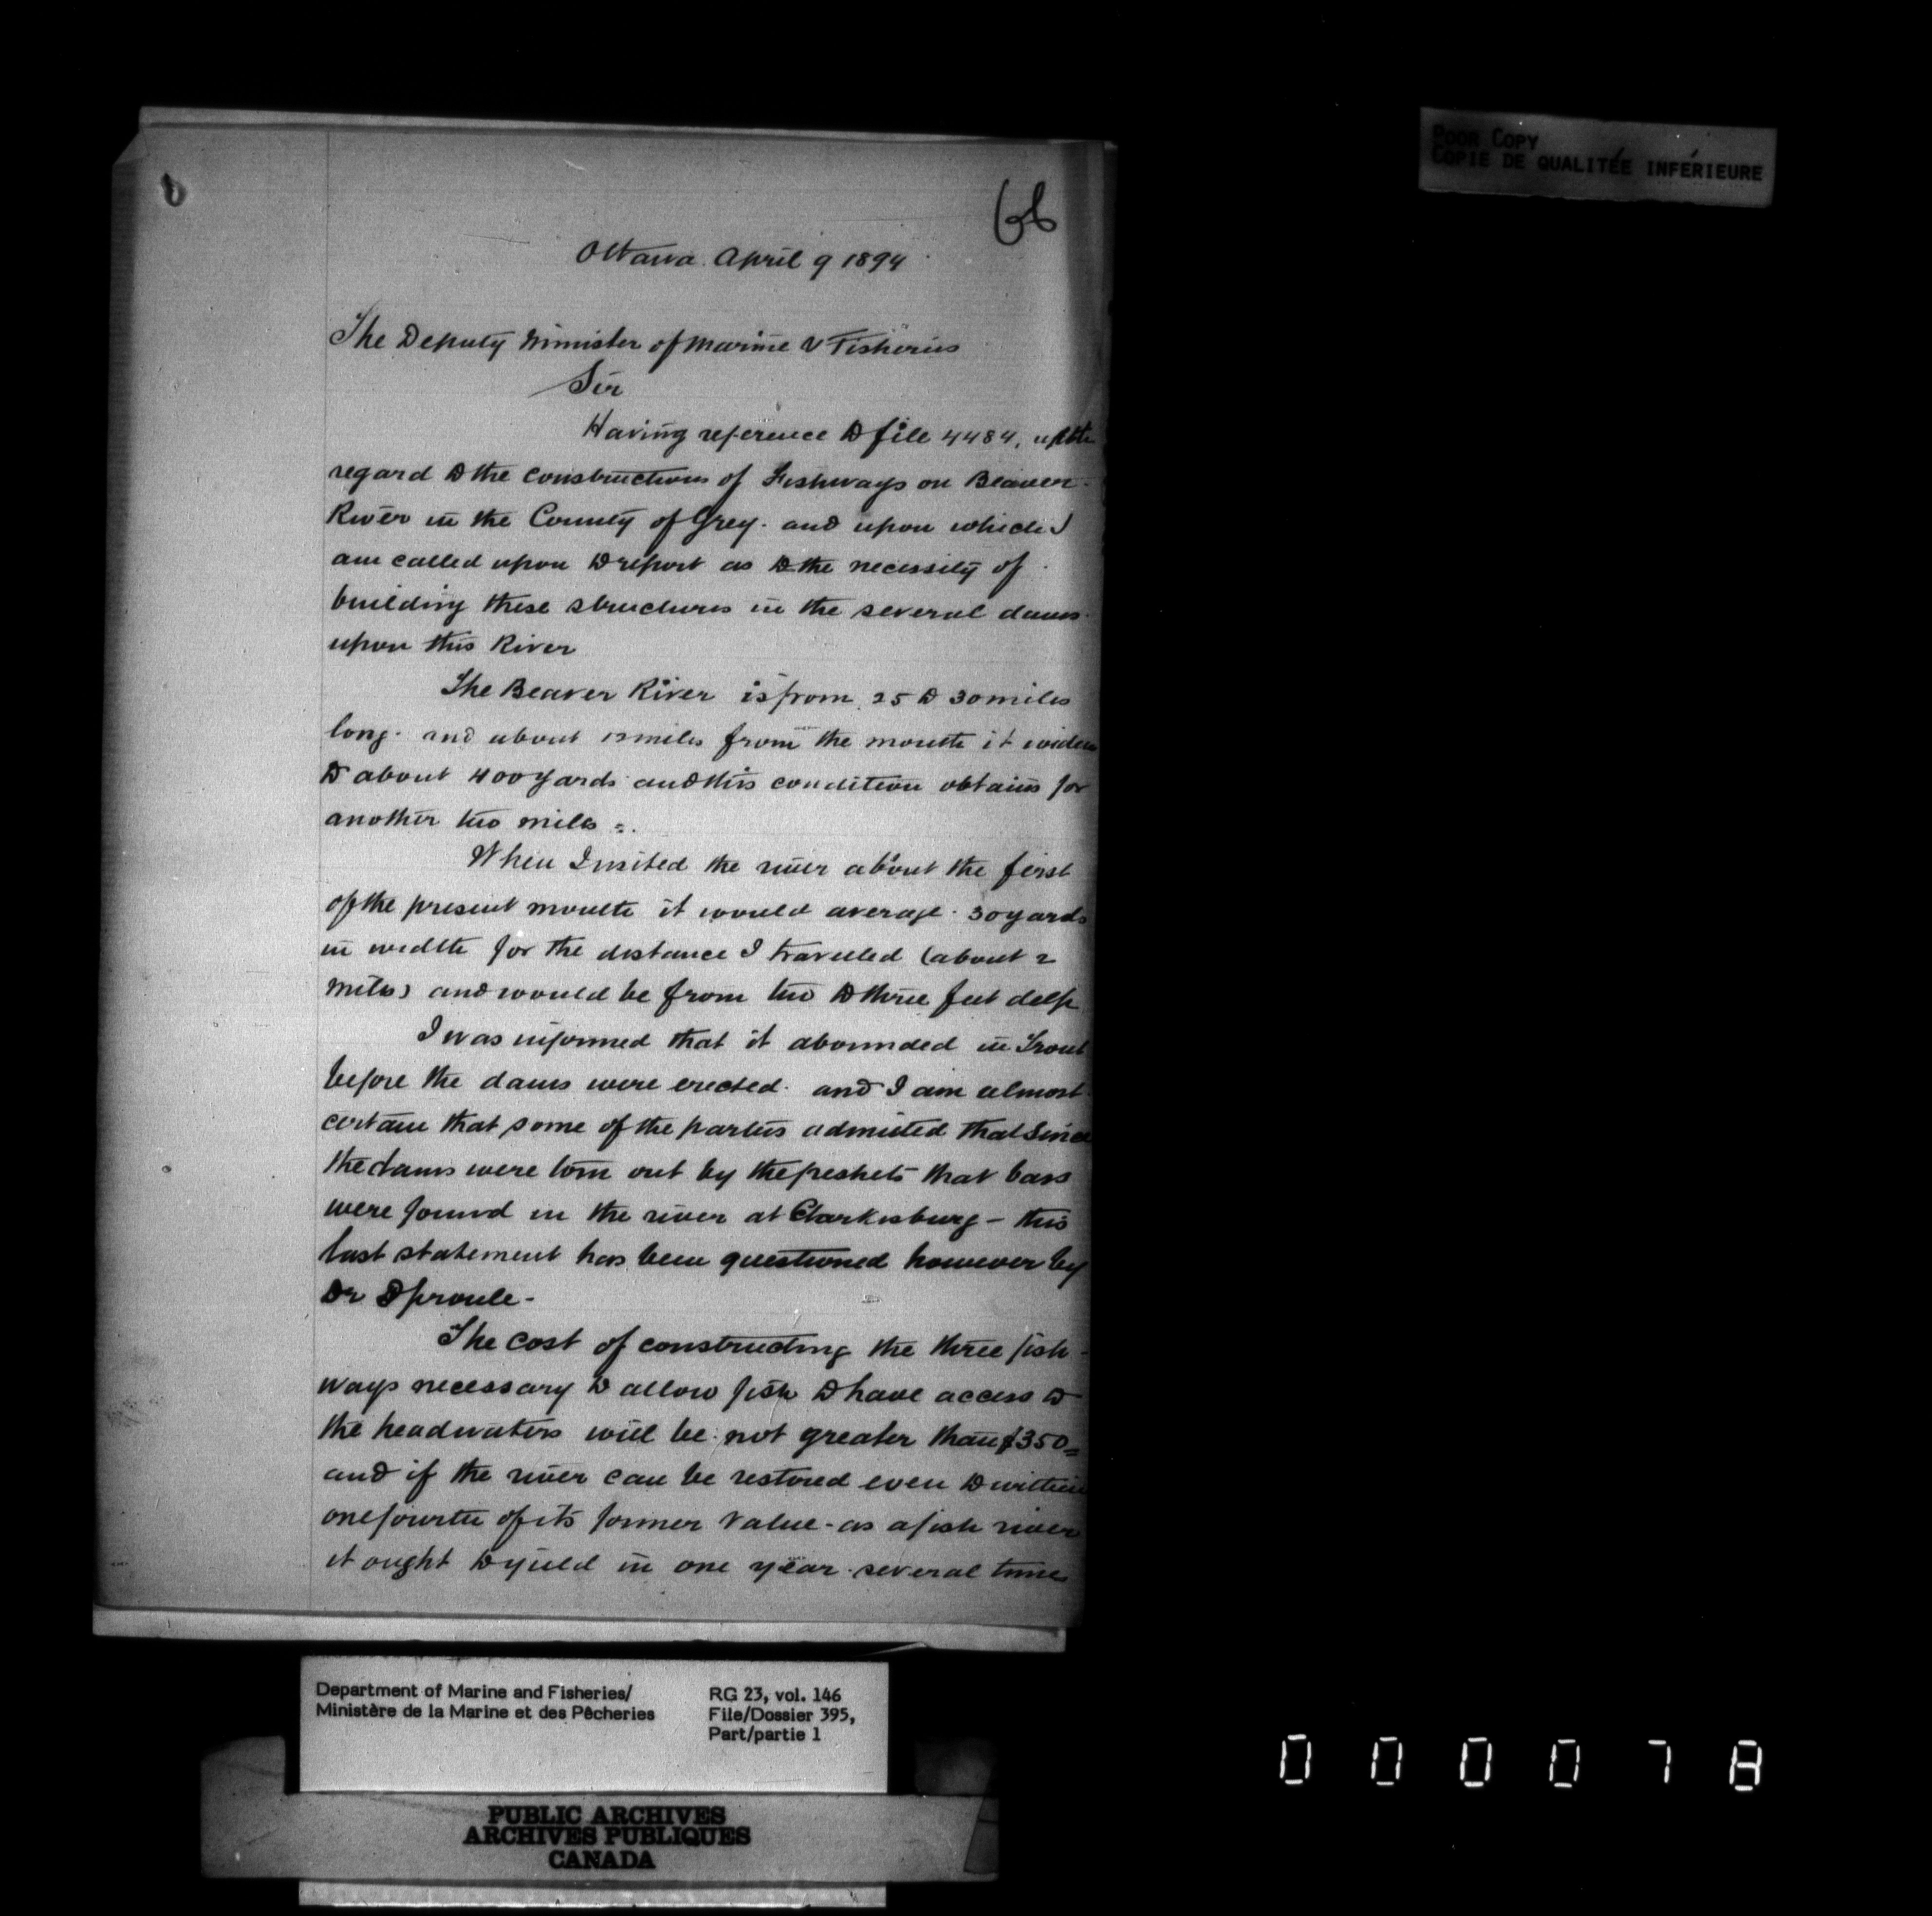 POOR COPY
COPIE DE QUALITÉE INFÉRIEURE
66
Ottawa. April 9 1894
The Deputy Minister of Marine & Fisheries
Sir
Having reference to file 4484,
regard to the constructions of Fishways on Beaver
River in the County of Grey. and upon which I
am called upon to report as to the necessity of
building these structures in the several dams
upon this River
The Beaver River is from 25 to 30 miles
long. and about miles from the mouth it widens
to about 400 yards and this condition obtains for
another two miles
When I visited the river about the first
of the present month it would average 30 yards
in width for the distance I travelled (about 2
miles) and would be from two to three feet deep
I was informed that it abounded in Trout
before the dams were erected. and I am almost
certain that some of the parties admitted that since
the dams were torn out by the freshets that bass
were found in the river at Clarksburg - this
last statement has been questioned however by
Dr Sproule -
The cost of constructing the three fish-
ways necessary to allow fish to have access to
the headwaters will be not greater than $350=
and if the river can be restored even to within
one fourth of its former value - as a fish river
it ought to yield in one year several times
Department of Marine and Fisheries/
Ministère de la Marine et des Pêcheries
RG 23, vol. 146
File/Dossier 395,
Part/partie 1
PUBLIC ARCHIVES
ARCHIVES PUBLIQUES
CANADA
000078